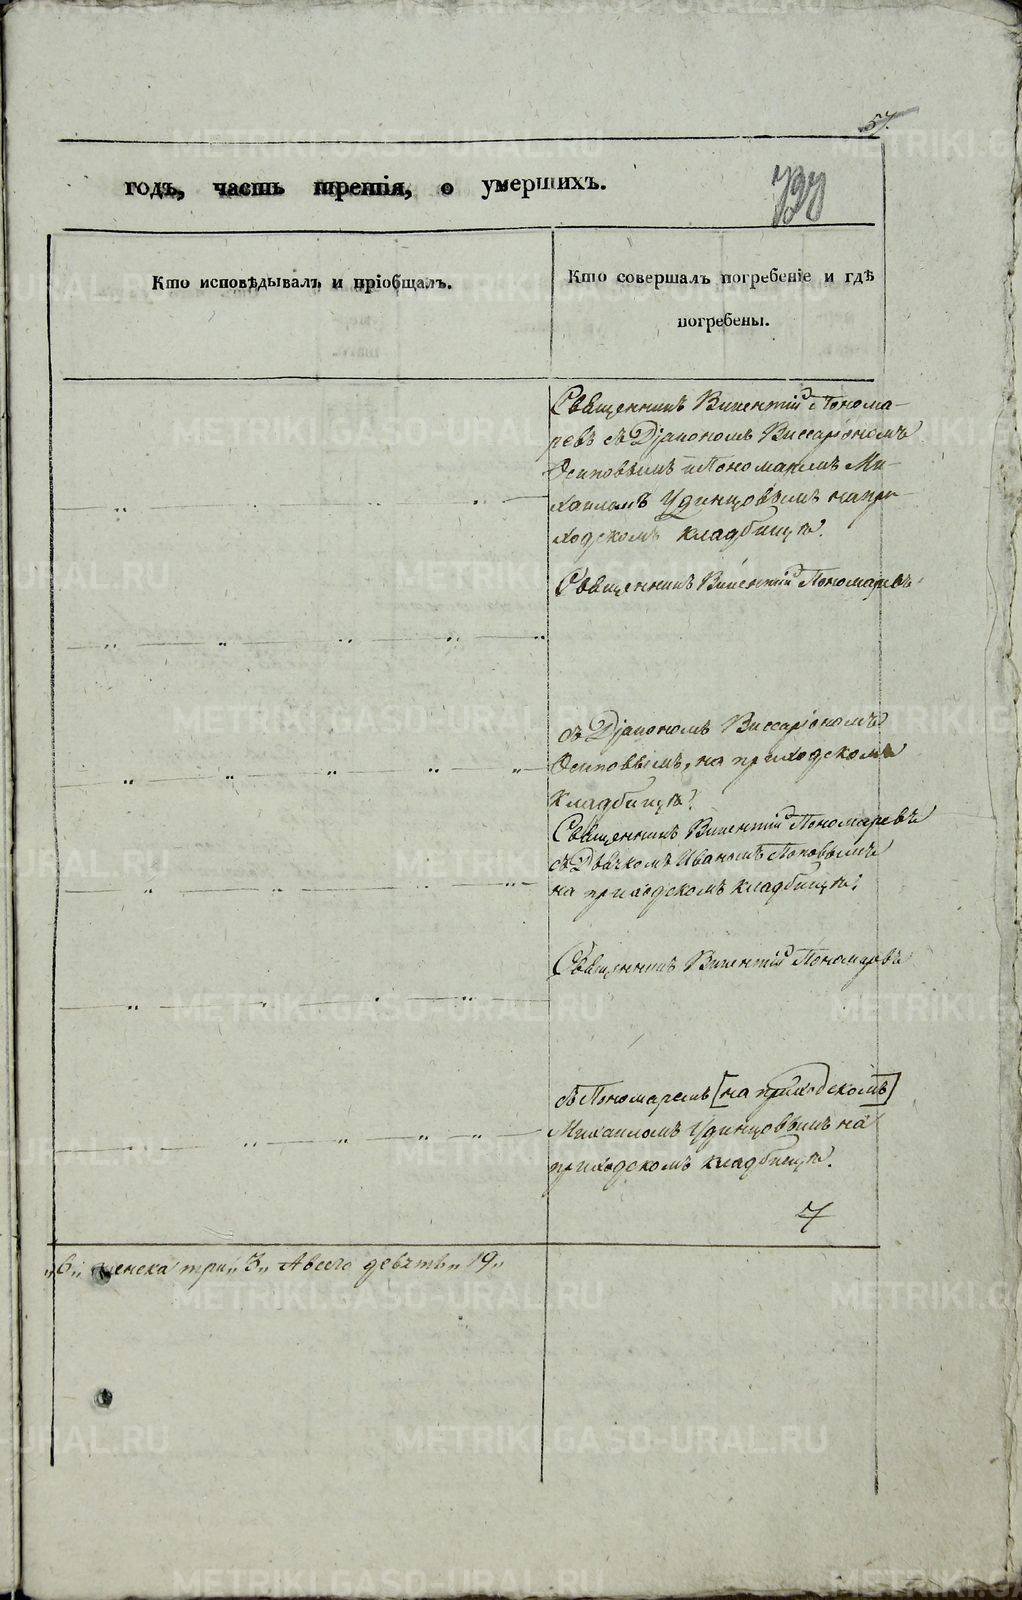 57.
годъ, часть третія, о умершихъ.
Кто исповѣдывалъ и пріобщалъ.
Кто совершалъ погребеніе и гдѣ
погребены.
Священникъ Викентій Понома-
ревъ съ Діакономъ Виссаріономъ
Осиповымъ и Пономаремъ Ми-
хаиломъ Удинцовымъ на при-
ходскомъ кладбищѣ.
Священникъ Викентій Пономаревъ
съ Діакономъ Виссаріономъ
Осиповымъ, на приходскомъ
кладбищѣ.
Священникъ Викентій Пономаревъ
съ Дьячкомъ Иваномъ Поповымъ
на приходскомъ кладбищѣ.
Священникъ Викентій Пономаревъ
съ Пономаремъ [на приходскомъ]
Михаиломъ Удинцовымъ на
приходскомъ кладбищѣ.
„6„ женска три„ 3„ А всего девять„ 9„
METRIKI.GASO-URAL.RU